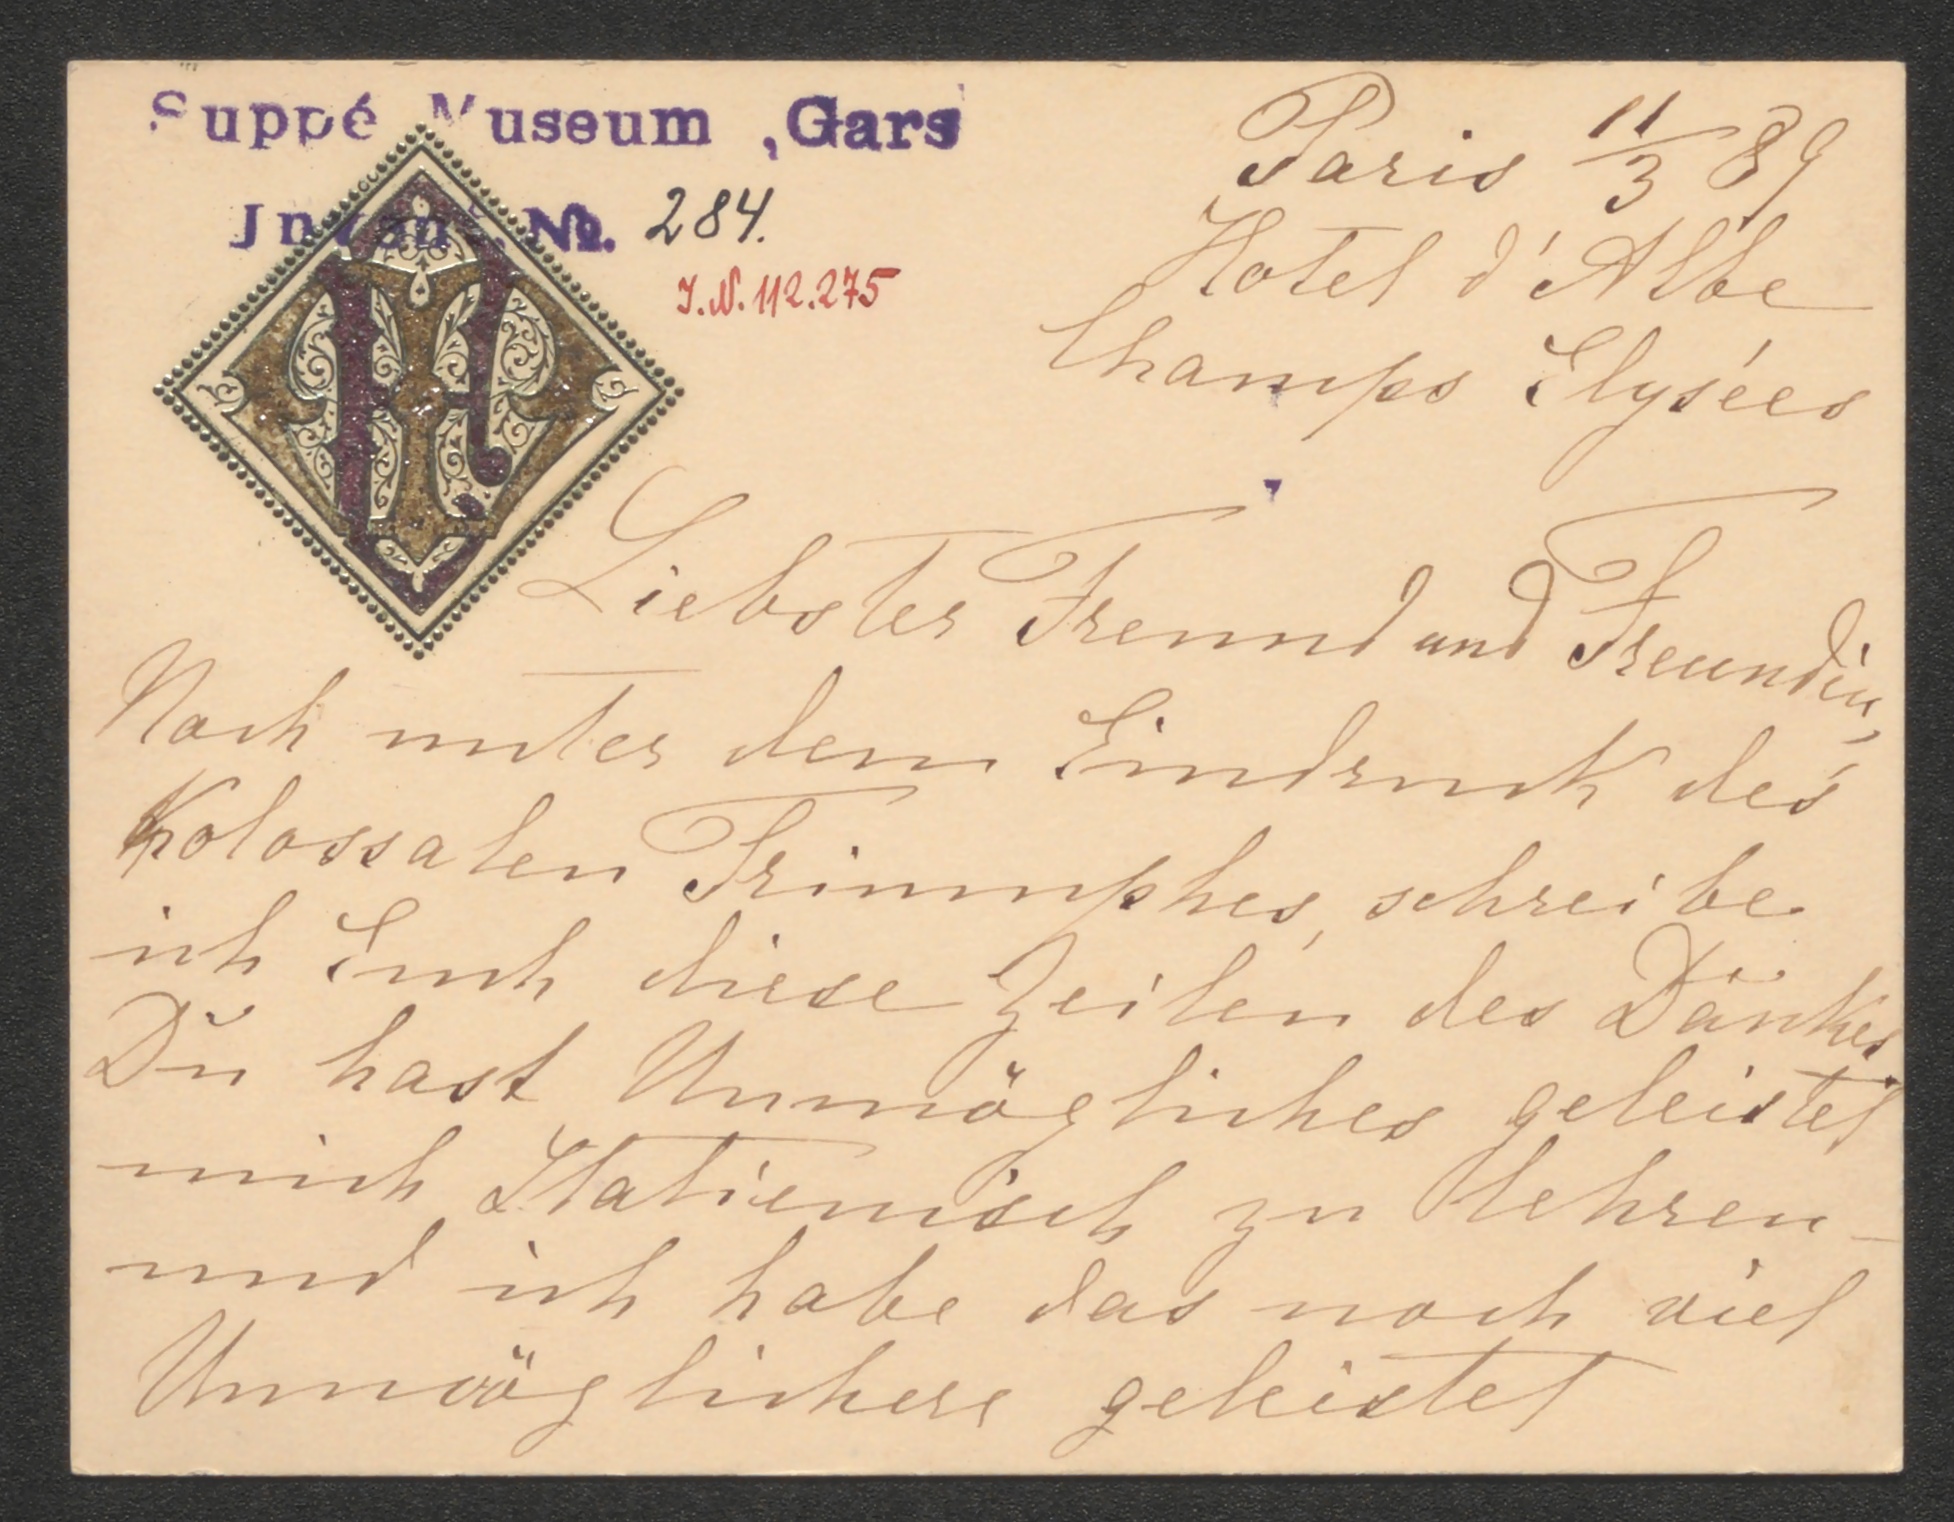 Suppé Museum, Gars
Invent. No. 284.
J.N. 112.275
Paris 11/3 89
Hotel d'Albe
Champs Elysées
Liebster Freund und Freundin,
Noch unter dem Eindruck des
Kolossalen Triumphes, schreibe
ich Euch diese Zeilen des Dankes
Du hast Unmögliches geleistet
mich Italienisch zu lehren
und ich habe das noch viel
Unmöglichere geleistet